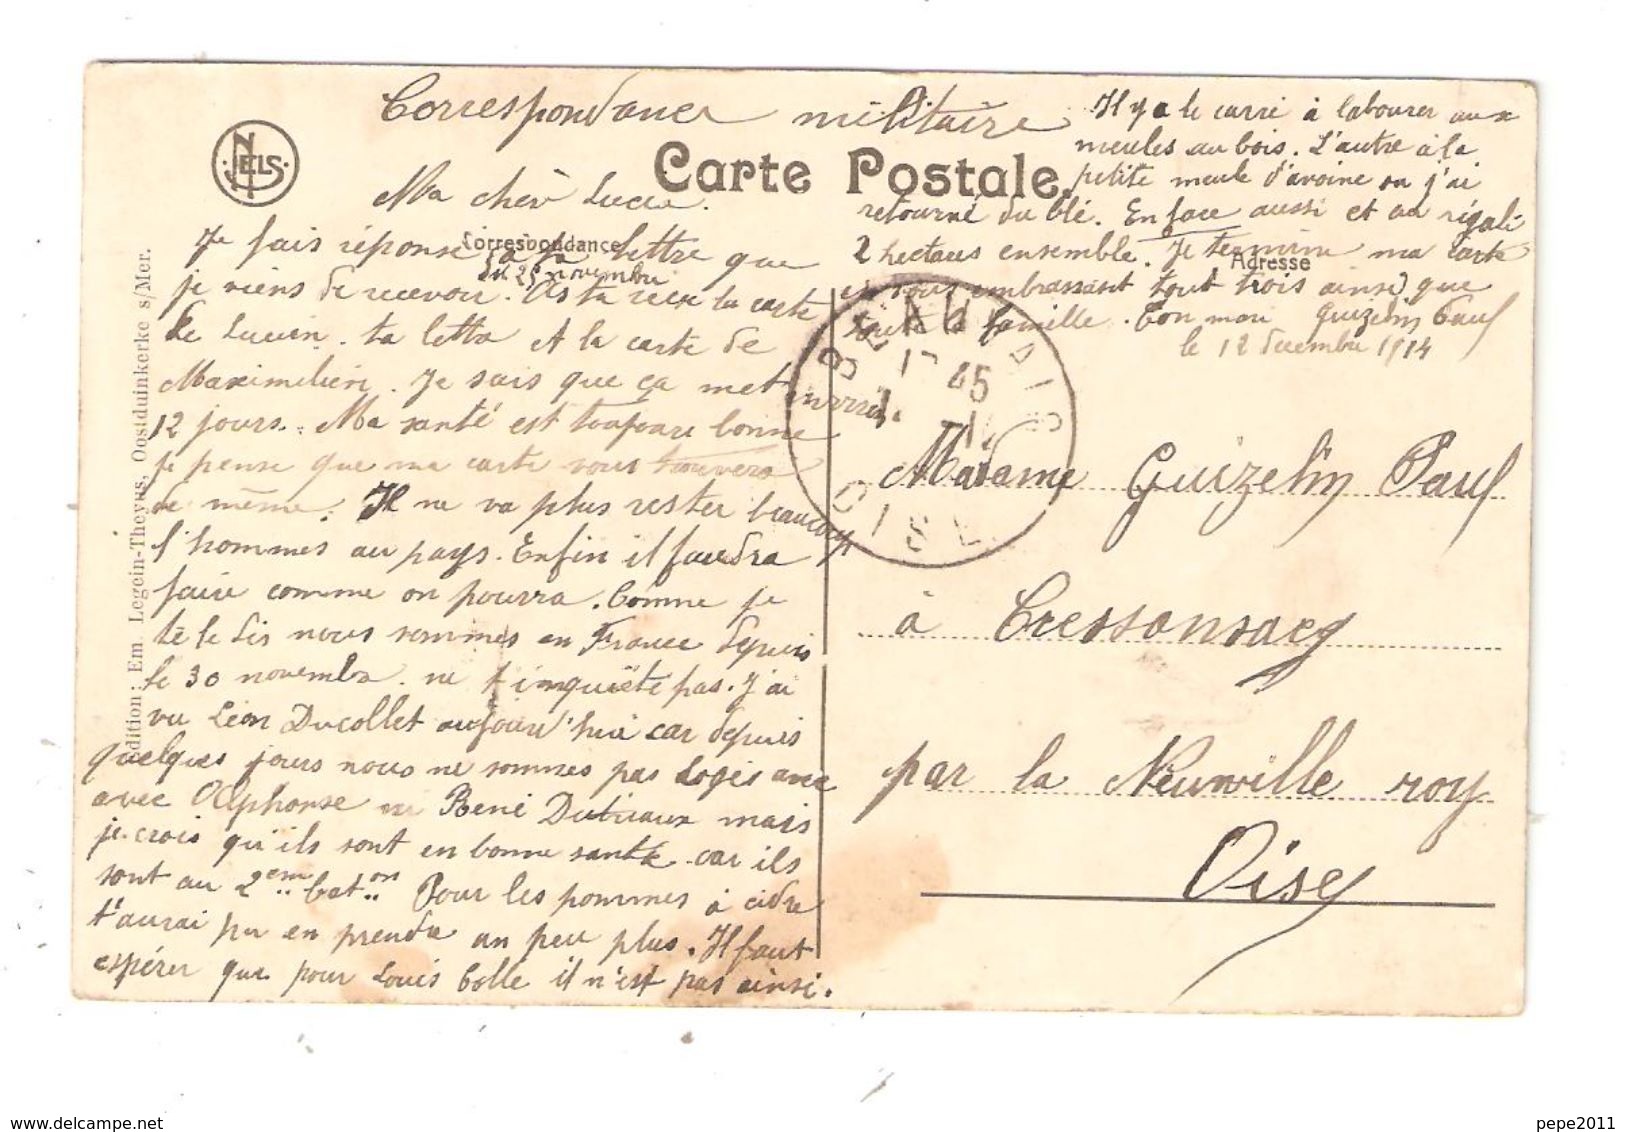 Correspondance militaire
Carte Postale
NELS
Ma chèr Lucie.
Correspondance
Je fais réponse à ta lettre que
du 25 novembre
je viens de recevoir. As tu reçu la carte
de Lucien. ta lettre et la carte de
Maximilien. Je sais que ça met environ
12 jours. Ma santé est toujours bonne
je pense que ma carte vous trouvera
de même. Il ne va plus rester beaucoup
d'hommes au pays. Enfin il faudra
faire comme on pourra. Comme je
te le dis nous sommes en France depuis
le 30 novembre. ne t'inquiète pas. J'ai
vu Léon Ducollet aujourd'hui car depuis
quelques jours nous ne sommes pas logés avec
avec Alphonse ni René Dutriaux mais
je crois qu'ils sont en bonne santé car ils
sont au 2em bat on Pour les pommes à cidre
t'aurai pu en prendre un peu plus. Il faut
espérer que pour Louis Colle il n'est pas ainsi.
Il y a le carré à labourer aux
meules au bois. L'autre à la
petite meule d'avoine ou j'ai
retourné du blé. En face aussi et au
2 hectares ensemble. Je termine ma carte
Adresse
en vous embrassant tout trois ainsi que
toute la famille. Ton mari Guizelin Paul
le 12 decembre 1914
Madame Guizelin Paul
à Cressonsacq
par la Neuville roy
Oise
BEAUVAIS
OISE
Edition: Em. Legein-Theyus, Oostduinkerke s/Mer.
www.delcampe.net
pepe2011